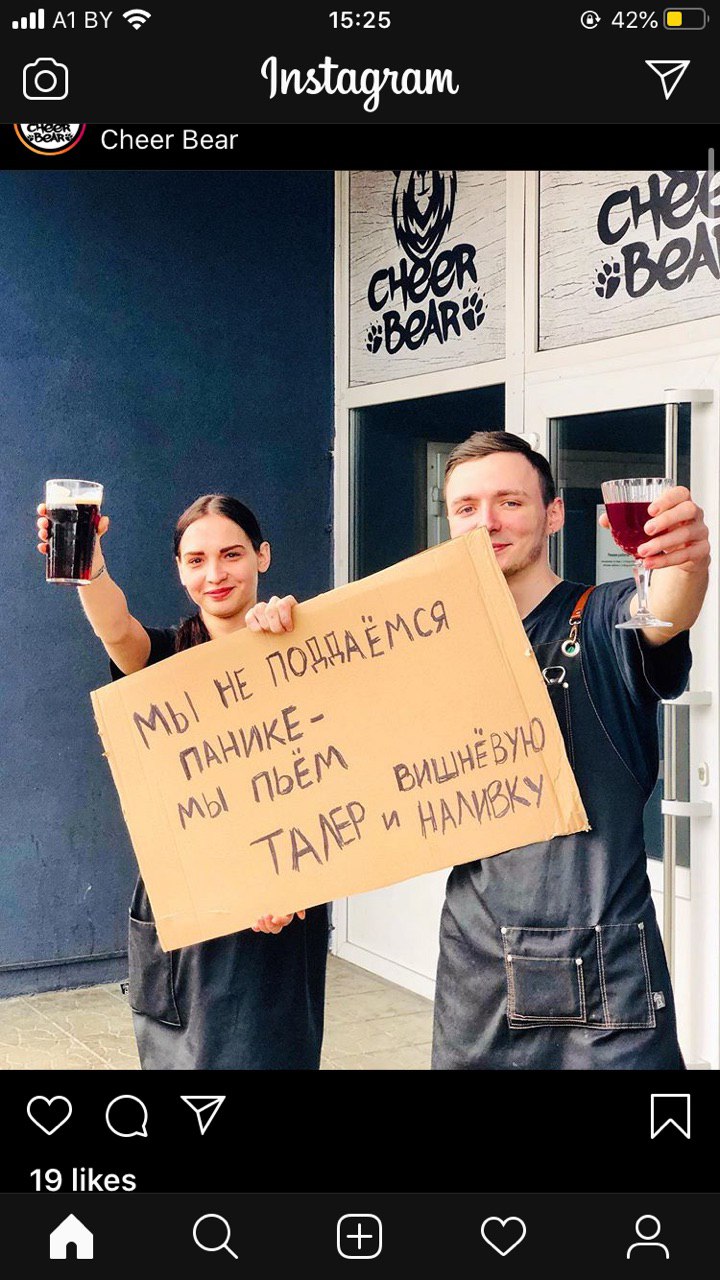 A1 BY
15:25
42%
Instagram
CHEER
BEAR
Cheer Bear
CHEER
BEAR
CHEE
BEAR
МЫ НЕ ПОДДАЁМСЯ
ПАНИКЕ-
МЫ ПЬЁМ ВИШНЁВУЮ
ТАЛЕР и НАЛИВКУ
19 likes